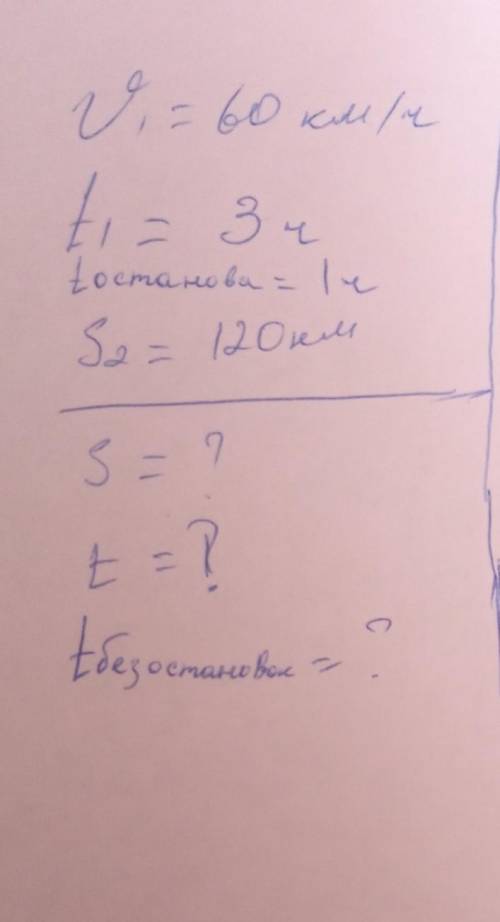 V₁ = 60 км/ч
t₁ = 3 ч
tостанови = 1 ч
S₂ = 120 км
S = ?
t = ?
tбезостановок = ?